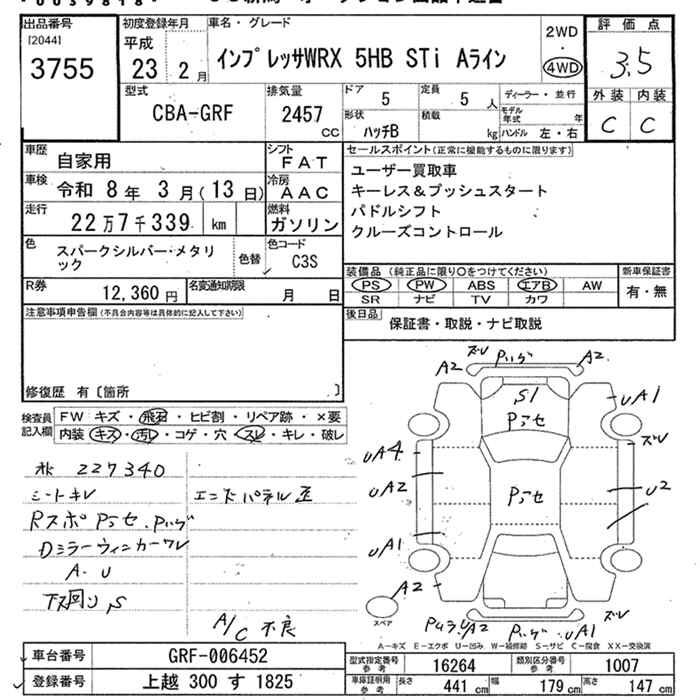 出品番号 初度登録年月 車名・グレード 評価点
[2044] 平成 2WD
3755 23 2月 インプレッサWRX 5HB STi Aライン ・ 4WD 3.5
型式 排気量 ドア 5 定員 5人 ディーラー・並行 外装 内装
CBA-GRF 2457 cc 形状 ハッチB 積載 kg モデル年式 年 ハンドル 左・右 C C
車歴 自家用 シフト FAT セールスポイント(正常に機能するものに限ります)
車検 令和 8年 3月(13日) 冷房 AAC ユーザー買取車
キーレス&プッシュスタート
走行 22万7千339 km 燃料 ガソリン パドルシフト
クルーズコントロール
色 スパークシルバー・メタリック 色替 色コード C3S
装備品(純正品に限り○をつけてください) 新車保証書
R券 12,360円 名変通知期限 月 日 PS PW ABS エアB AW 有・無
SR ナビ TV カワ
注意事項申告欄(不具合内容等は具体的に記入して下さい) 後日品 保証書・取説・ナビ取説
修復歴 有〔箇所 〕
検査員記入欄 FW キズ・飛石・ヒビ割・リペア跡・×要
内装 キズ・汚レ・コゲ・穴・スレ・キレ・破レ
ズレ Pハゲ
A2 A2
S1
Pラセ
uA1
ズレ
uA4
uA2
Pラセ
u2
uA1
A2
227340
シートキレ エンドパネル歪
Rスポ Pラセ.Pハゲ
Dミラーウィンカーワレ
A.U
下回りS
A/C 不良
スペア
ズレ
A2 Pハゲ uA1
A-キズ E-エクボ U-凹み W-補修跡 S-サビ C-腐食 XX-交換済
車台番号 GRF-006452 型式指定番号 参考 16264 類別区分番号 参考 1007
登録番号 上越 300 す 1825 車庫証明用 参考 長さ 441 cm 幅 179 cm 高さ 147 cm